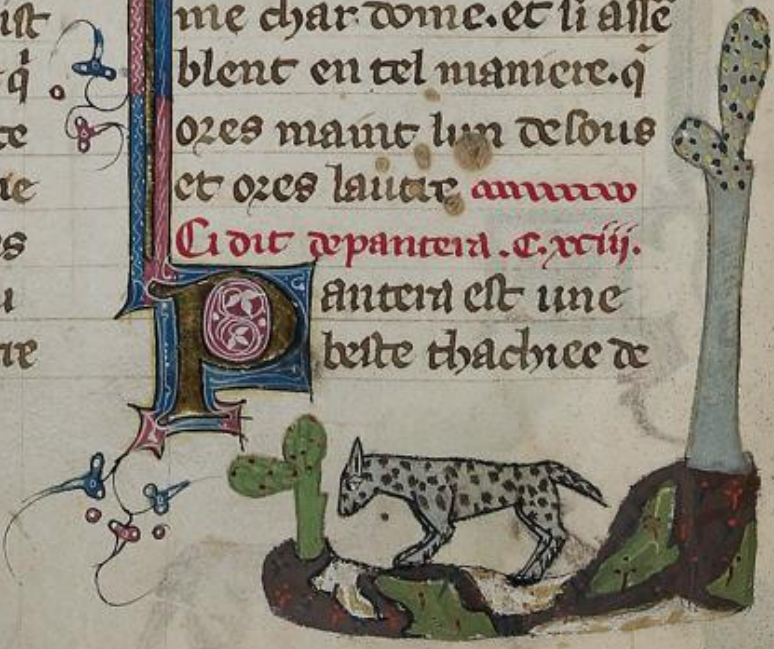 ist
me char dome. et si asse
q̄
blent en tel maniere. q̄
te
ores maint lun desous
ie
et ores lautre
es
Ci dit de pantera .C.xciii.
u
Pantera est une
tre
beste thachiee de